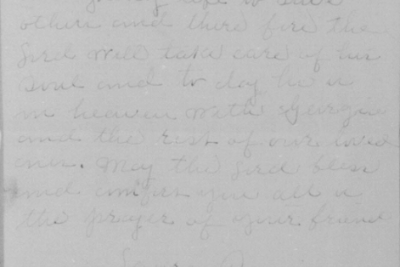 life to save
others and there fore the
Lord will take care of his
soul and to day he is
in heaven with Georgie
and the rest of our loved
ones. May the Lord bless
and comfort you all is
the prayer of your friend